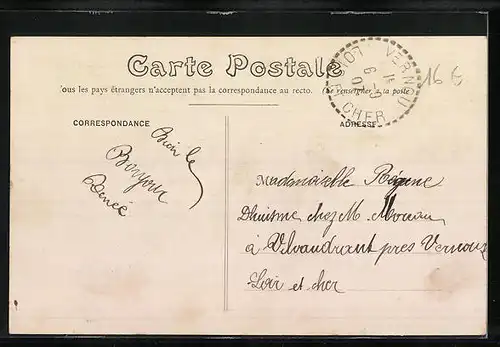 Carte Postale
ous les pays étrangers n'acceptent pas la correspondance au recto. (Se renseigner à la poste)
CORRESPONDANCE
ADRESSE
LOIR CHER
16 €
Bien le
Bonjour
Renée
Mademoiselle
Dhuisme chez M. Moreau
à près
Loir et cher